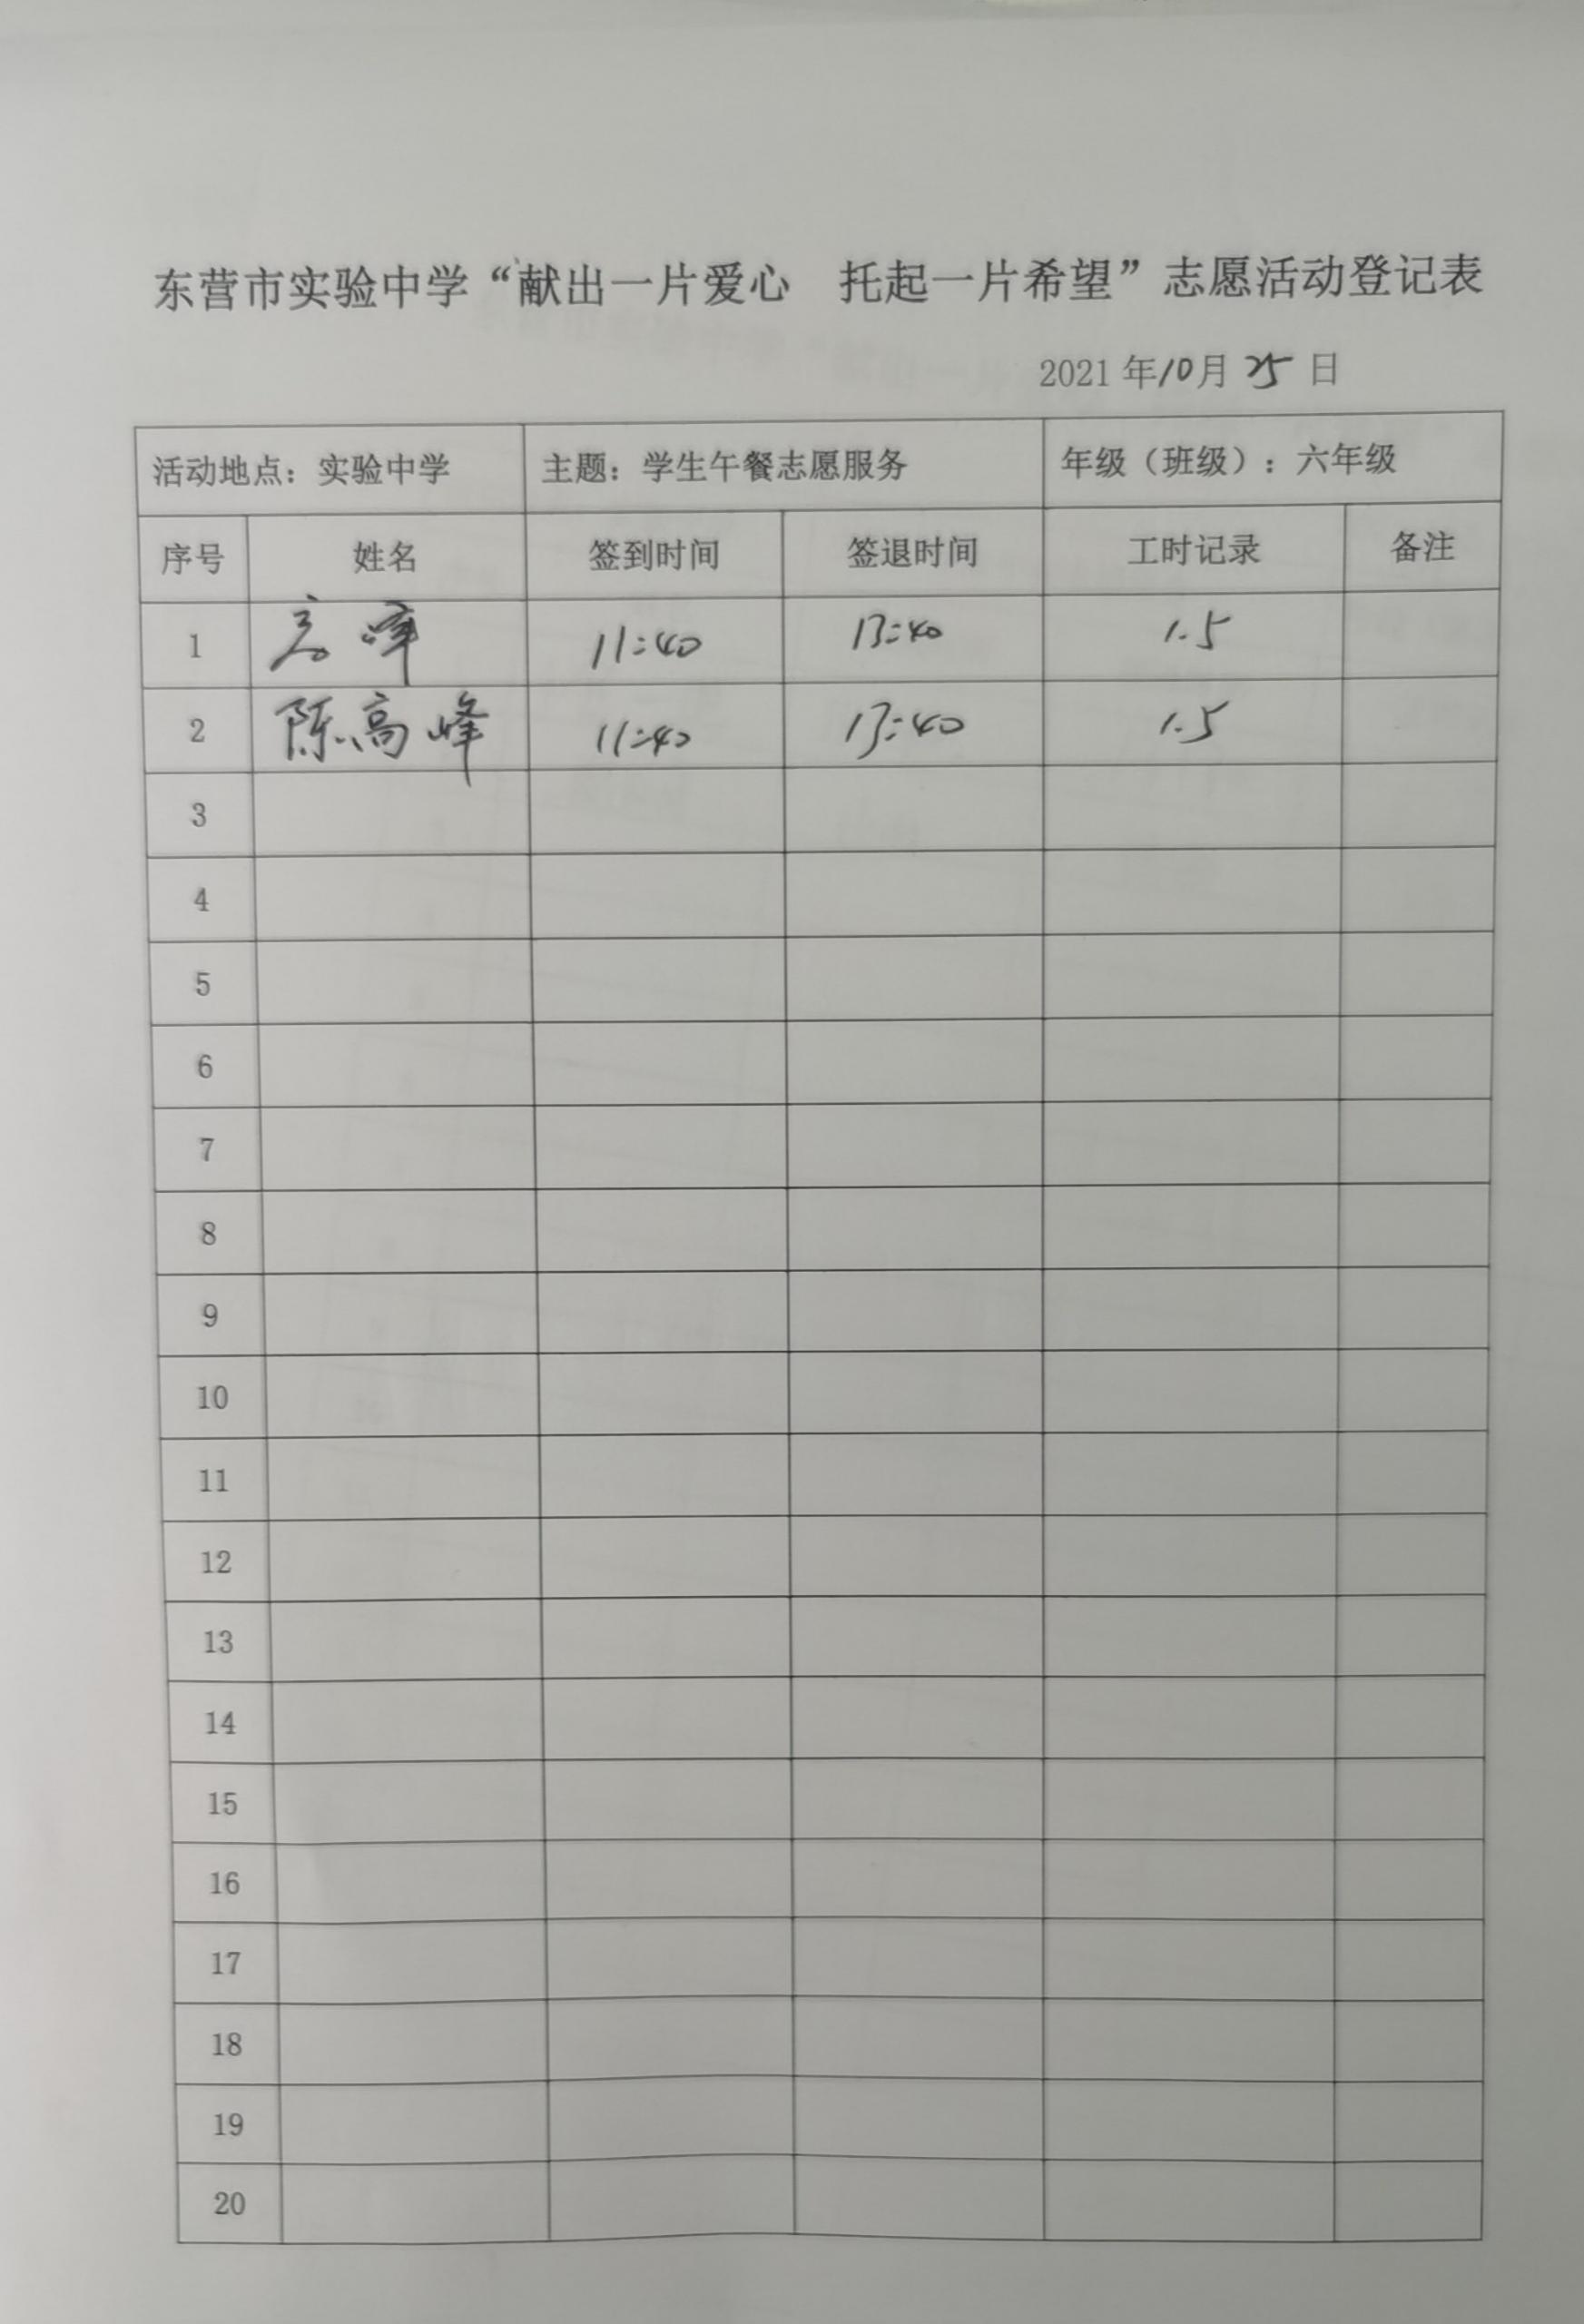 东营市实验中学“献出一片爱心 托起一片希望”志愿活动登记表
2021年10月25日
活动地点：实验中学 主题：学生午餐志愿服务 年级（班级）：六年级
序号 姓名 签到时间 签退时间 工时记录 备注
1 11:40 13:40 1.5
2 陈高峰 11:40 13:40 1.5
3
4
5
6
7
8
9
10
11
12
13
14
15
16
17
18
19
20